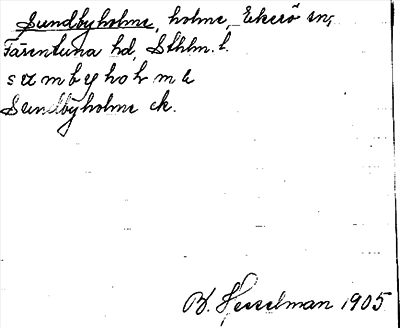 Sundbyholme, holme, Ekerö sn,
Färentuna hd, Sthlm. l.
sumbyholme
Sundbyholme ek.
B. Hesselman 1905